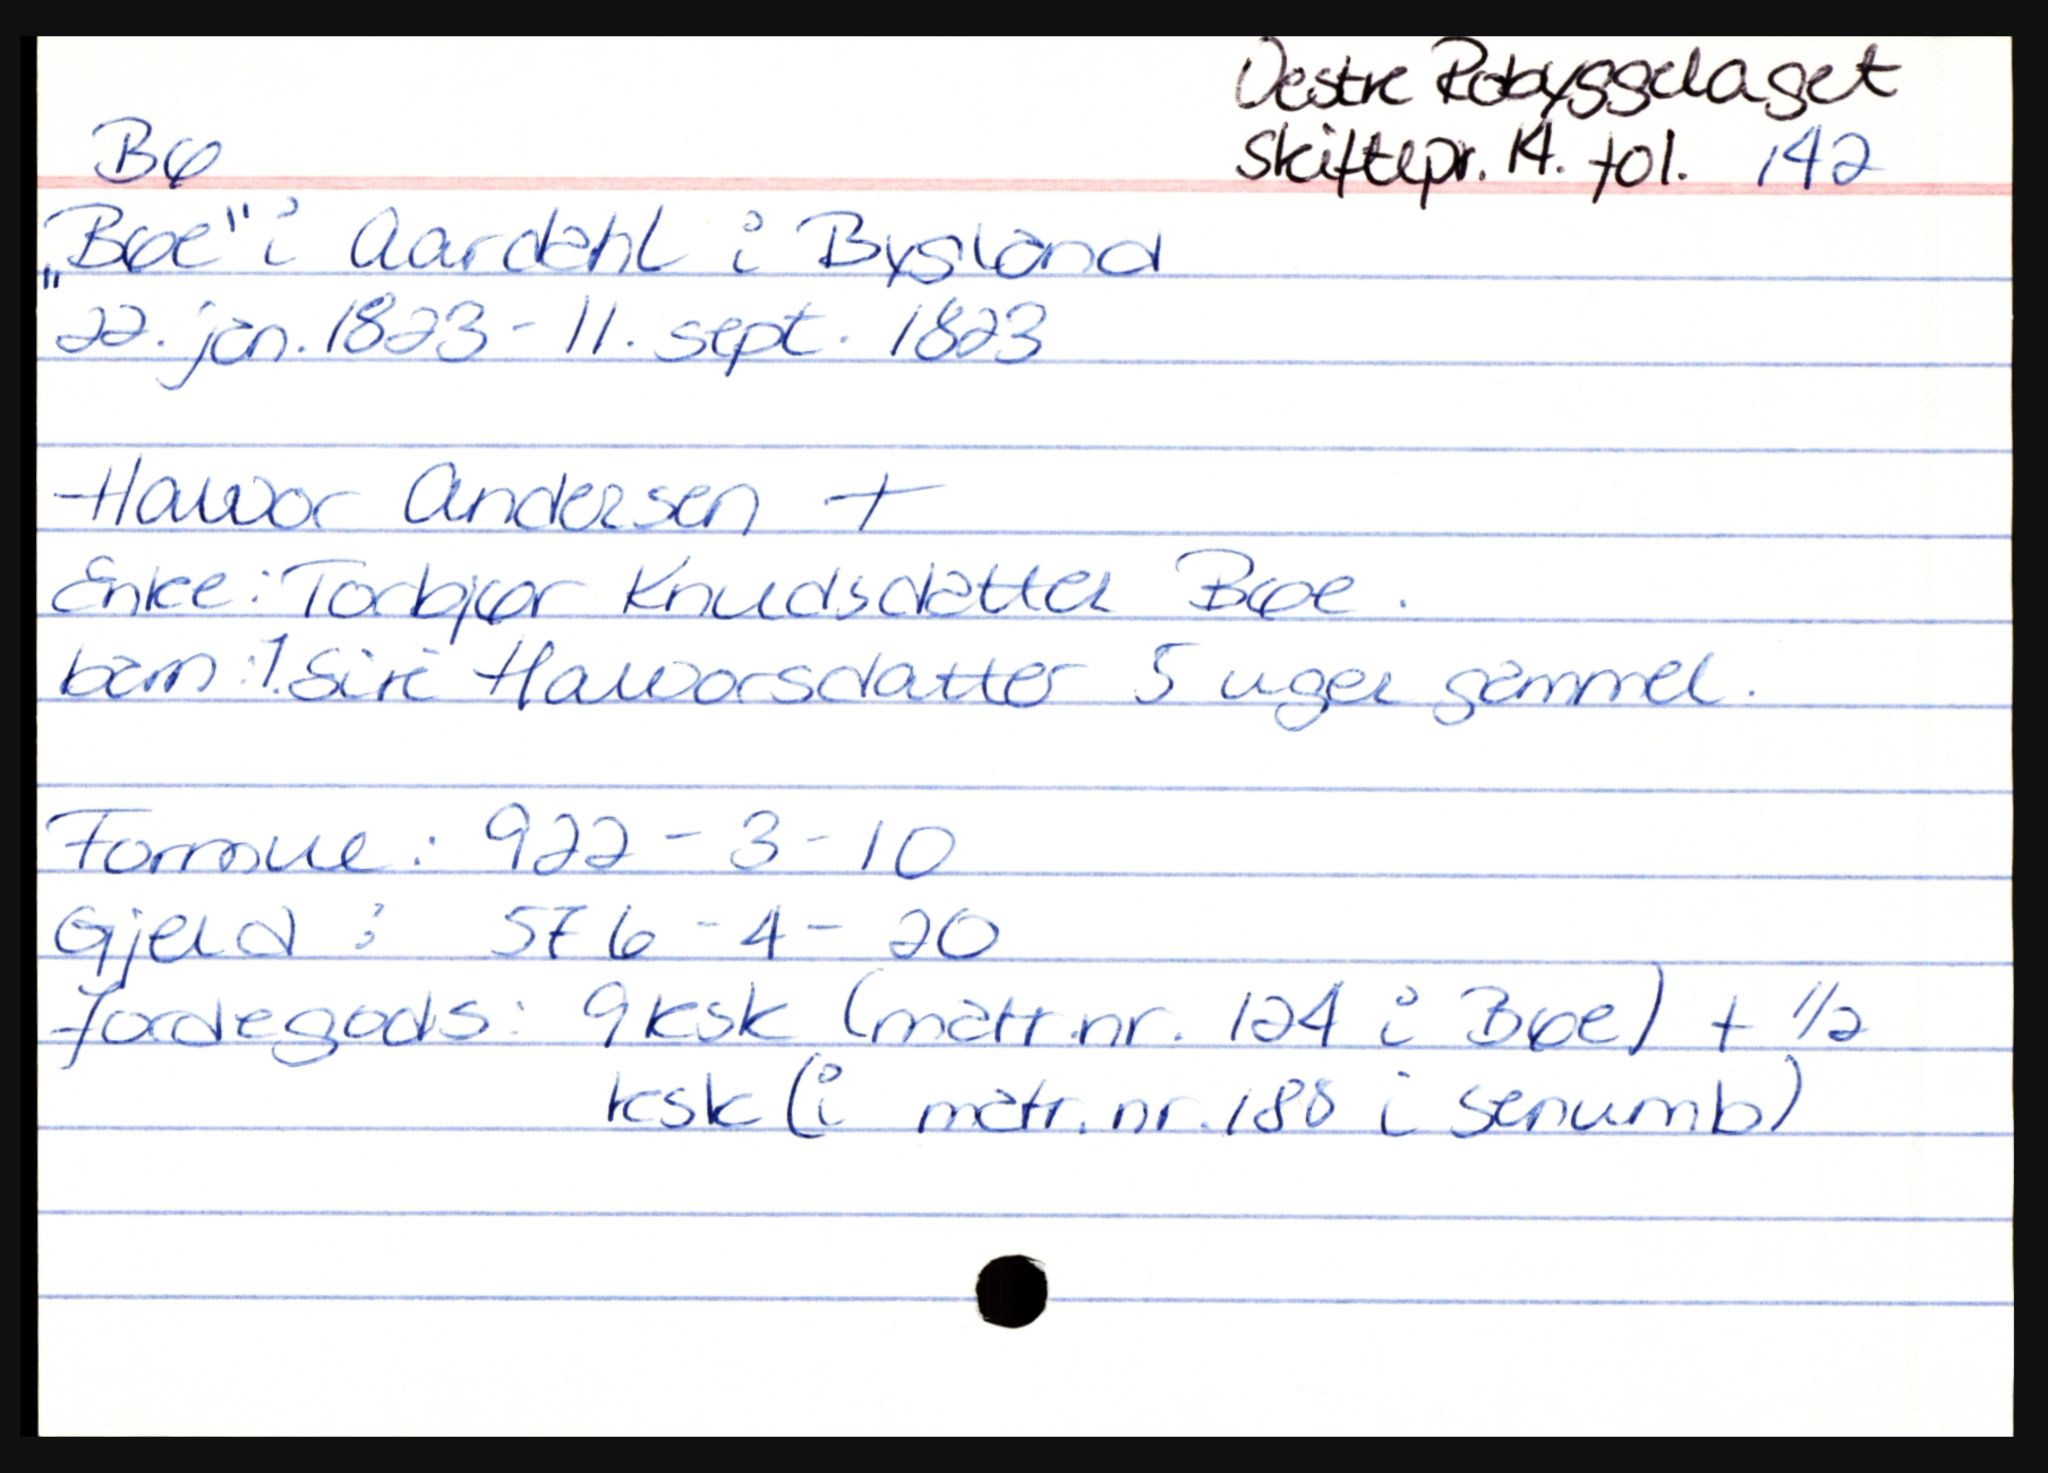 Vestre Robyggelaget
Skiftepr. 14. fol. 142
Bø
„Bøe" i Aardahl i Bysland
22. jan. 1823 - 11. sept. 1823
Hawor Andersen +
Enke: Torbjør Knudsdatter Bøe.
barn: 1. Siri Haworsdatter 5 uger gammel.
Formue: 922 - 3 - 10
Gjeld: 576 - 4 - 20
Jordegods: 9 ksk (matr.nr. 124 i Bøe) + 1/2
ksk (i matr. nr. 188 i Senumb)